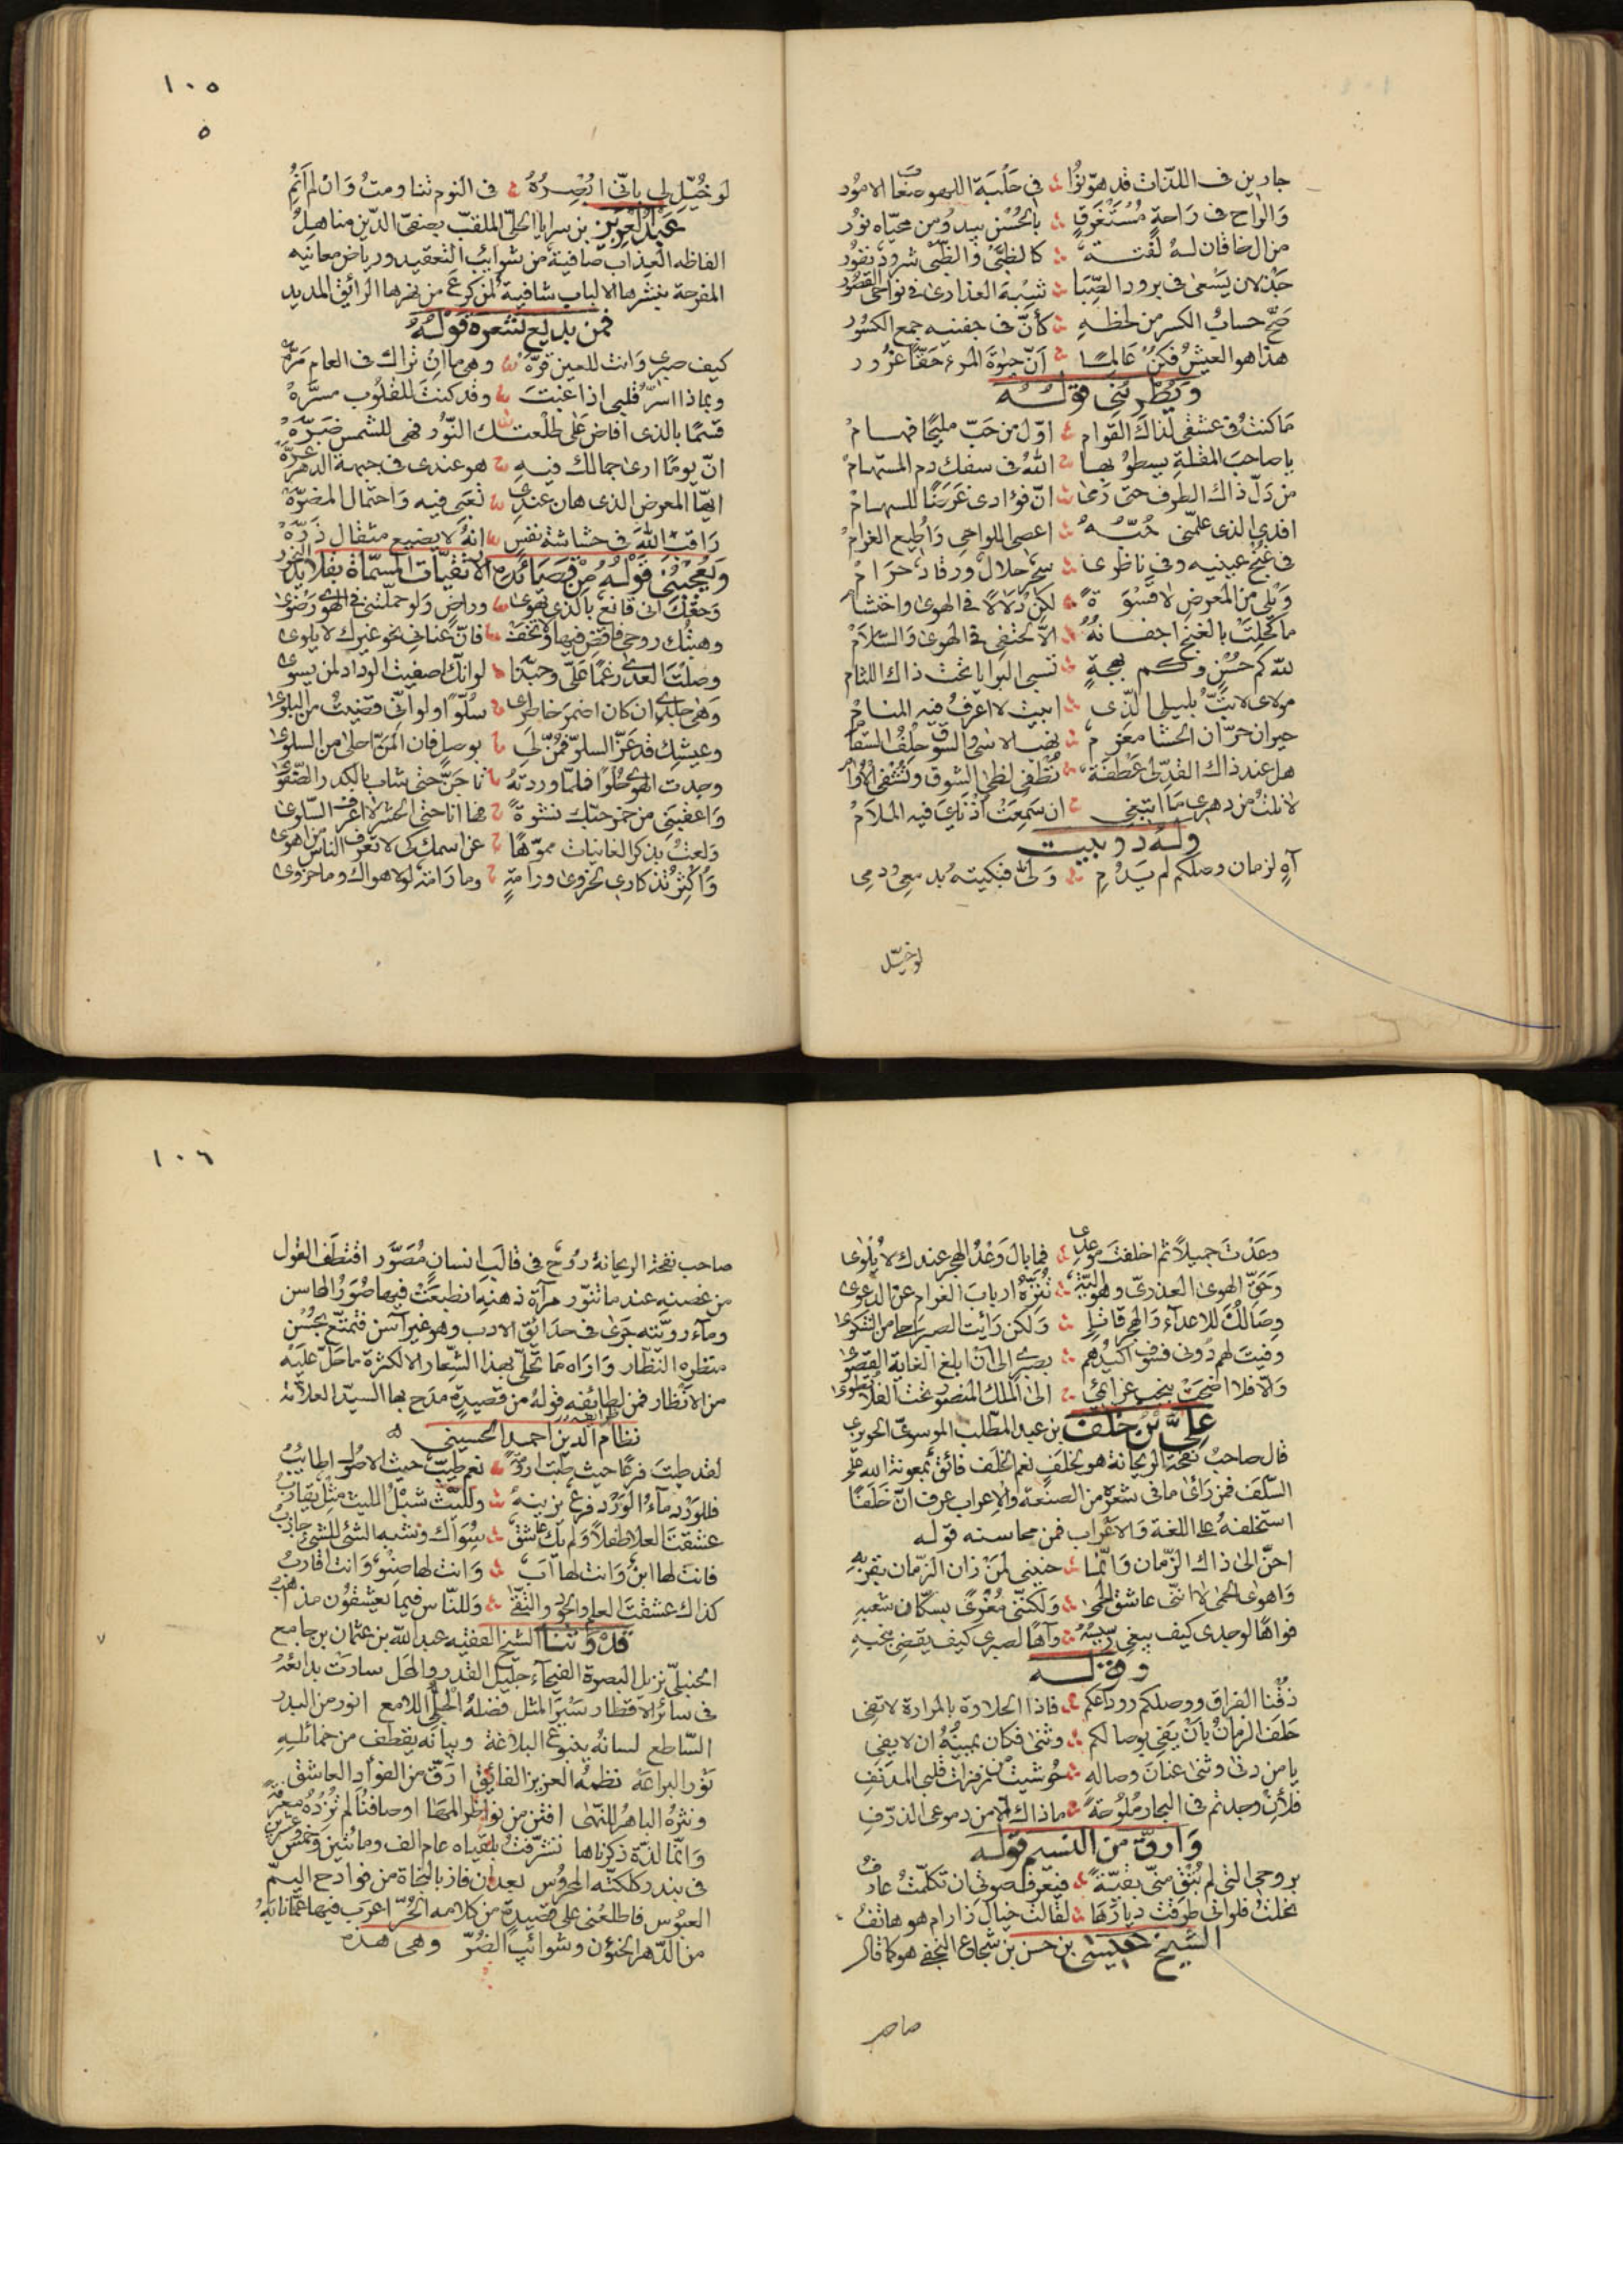 جارين في اللذات قد هوّنوا في حلبة اللهو صعاب الامور
والراح في راحة مستغرق بالحسن يبدو من محيّاه نور
من ال خاقان له لفتة كالظبي والظبي شرود نفور
جذلان يسعى في برود الصّبا نسبة العذارى في نواحي القصور
صحّ حساب الكسر من لحظه كأنّ في جفنيه جمع الكسور
هذا هو العيش فكن عالما انّ حيوة المرء حقّا غرور
ويطربني قوله
ما كنت في عشقي لذاك القوام اوّل من حبّ مليحا فهام
يا صاحب المقلة يسطو بها الله في سفك دم المستهام
من دلّ ذاك الطرف حتى رمى انّ فؤادي غرضا للسهام
افدي الذي علمني حبّه اعصي اللواحي واطيع الغرام
في غنج عينيه وفي ناظري سحر حلال ورقاد حرام
ويلي من المعرض لا قسوة لكن دلالا في الهوى واحتشام
ما كحلت بالغنج اجفانه الّا لحتفي في الهوى والسلام
لله كم حسن وكم بهجة تسبي البرايا تحت ذاك اللثام
مولاي لا بتّ بليلي الذي ابيت لا اعرف فيه المنام
حيران حرّان الحشا مغرم نضب الاسى والشوق حلف السقام
هل عند ذاك القدّ لي عطفة تطفي لظى الشوق وتشفي الاوام
لا نلت من دهري ما ابتغي ان سمعت اذني فيه الملام
وله دوبيت
آه لزمان وصلكم لم يدم ولّى فبكيته بدمعي ودمي
لو خيّل
١٠٥
٥
لو خيّل لي بانّي ابصره في النوم ثنا ومتّ وان لم انم
عبد العزيز بن سرايا الحلي الملقب بصفي الدّين مناهل
الفاظه العذاب صافية من شوائب التعقيد ورياض معانيه
المفرحة بنشرها الالباب شافية لمن كرع من نهرها الرائق المديد
فمن بديع شعره قوله
كيف صبري وانت للعين قرّة وهي ما ان تراك في العام مرّة
وبماذا اسرّ قلبي اذا غبت وقد كنت للقلوب مسرّة
قسما بالذي افاض على طلعتك النّور فهي للشمس ضرّة
انّ يوما ارى جمالك فيه هو عندي في جبهة الدهر غرّة
ايها المعرض الذي هان عندي تعبي فيه واحتمال المضرّة
راقب الله في حشاشة نفس انه لا يضيع مثقال ذرّة
ويعجبني قوله من قصائده الارتقيات المسمّاة بقلائد النحور
وحقّك اني قانع بالذي تهوى وراض ولو حملتني في الهوى رضوى
وهبتك روحي فاقض فيها ولا تخف فانّ عناني نحو غيرك لا يلوى
وصلت العدى رغما عليّ وحبّذا لو انك اصفيت الوداد لمن يسوى
وهي جلدي ان كان اضمر خاطري سلوّا ولو اني قضيت من البلوى
وعيشك قد عزّ السلوّ فمنّ لي بوصل فان المنّ احلى من السلوى
وجدت الهوى حلوا فلمّا وردته تاجن حتى شاب بالكدر الصّفوا
واعقبني من خمر حبّك نشوة فها انا حتى الحشر لا اعرف السلوى
ولعت بذكر الغانيات مموّها عن اسمك كي لا تعرف الناس من اهوى
واكثر تذكاري لحزوى ورامة وما رامة لولا هواك وما حزوى
وعدت جميلا ثم اخلفت موعدي فما بال وعد الهجر عندك لا يلوى
وحقّ الهوى العذريّ وهو اليّة تنزّه ارباب الغرام عن الدعوى
وصالك للاعداء والهجر قاتلي ولكن رأيت الصبر احلى من الشكوى
وفيت لهم دوني فسوف اكيدهم بصبري الى ان ابلغ الغاية القصوى
والّا فلا اضحت بنجب عزائمي الى الملك المنصور تحت الفلا تطوى
عليّ بن خلف بن عبد المطلب الموسوي الحويزي
قال صاحب نفحة الريحانة هو الخلف نعم الخلف فائق بمعونة الله على
السلف فمن رأى ما في شعره من الصنعة والاعراب عرف انّ خلفا
استخلفه على اللغة والاعراب فمن محاسنه قوله
احنّ الى ذاك الزمان وانّما حنيني لمن زان الزمان بقربه
واهوى الحمى لا انني عاشق الحمى ولكنني مغرى بسكّان شعبه
فواها لوجدي كيف يبغي رسيسه وآها لصبري كيف يقضي بنحبه
وقوله
ذقنا الفراق ووصلكم ورداعكم فاذا الحلاوة بالمرارة لا تفي
حلف الزمان بان يفي بوصالكم وثنى فكان يمينه ان لا يفي
يا من دنى وثنى عنان وصاله حوشيت من زفرات قلبي المدنف
فلان وجدتم في البحار ملوحة ماذاك الّا من دموعي الذرّف
وارقّ من النسيم قوله
بروحي التي لم تبق منّي بقيّة فيعرف صوتي ان تكلمت عارف
نحلت فلو اني طرقت ديارها لقالت خيال زار ام هو هاتف
الشيخ عيسى بن حسن بن شجاع النجفي هو كما قال
صاحب
١٠٦
صاحب نفحة الريحانة روح في قالب انسان مصوّر اقتطف القول
من غصنه عندما تنوّر مرآة ذهنه انطبعت فيها صور المحاسن
وماء رويّته جرى في حدائق الادب وهو غير آسن فتمتّع بحسن
منظره النظار واراه ما تحلّى بهذا الشعار الا لكثرة ما حلّ عليه
من الانظار فمن لطايفه قوله من قصيدة مدح بها السيّد العلامة
نظام الدين احمد الحسيني
لقد طبت فرعا حيث طبت ارومة نعم طيّب حيث الاصول اطايب
فللورد ماء الورد فرع يزينه ولليث شبل الليث مثل يقارب
عشقت العلا طفلا ولم يك عاشق سواك وشبه الشئ للشئ جاذب
فانت لها ابن وانت لها اب وانت لها صنو وانت اقارب
كذاك عشقت العلم والجود والتقى وللنّاس فيما يعشقون مذاهب
قدوتنا الشيخ الفقيه عبد الله بن عثمان بن جامع
الحنبليّ نزيل البصرة الفيحاء جليل القدر والمحل سارت بدائعه
في سائر الاقطار سير المثل فضله الجليّ اللامع انور من البدر
السّاطع لسانه ينبوع البلاغة وبيانه يقطف من خمائله
نور البراعة نظمه العزيز الفائق ارقّ من الفؤاد العاشق
ونثره الباهر للنهى افتن من نواظر المها اوصافنا لم تزده معرفة
وانّما لذة ذكرناها تشرّفت بلقياه عام الف ومائتين وخمس وعشرين
في بندر كلكته المحروس بعد ان فاز بالنجاة من فوادح اليمّ
العبوس فاطلعني على قصيدة من كلامه الحرّ اعرب فيها عمّا نابه
من الدّهر الخؤن وشوائب الضرّ وهي هذه